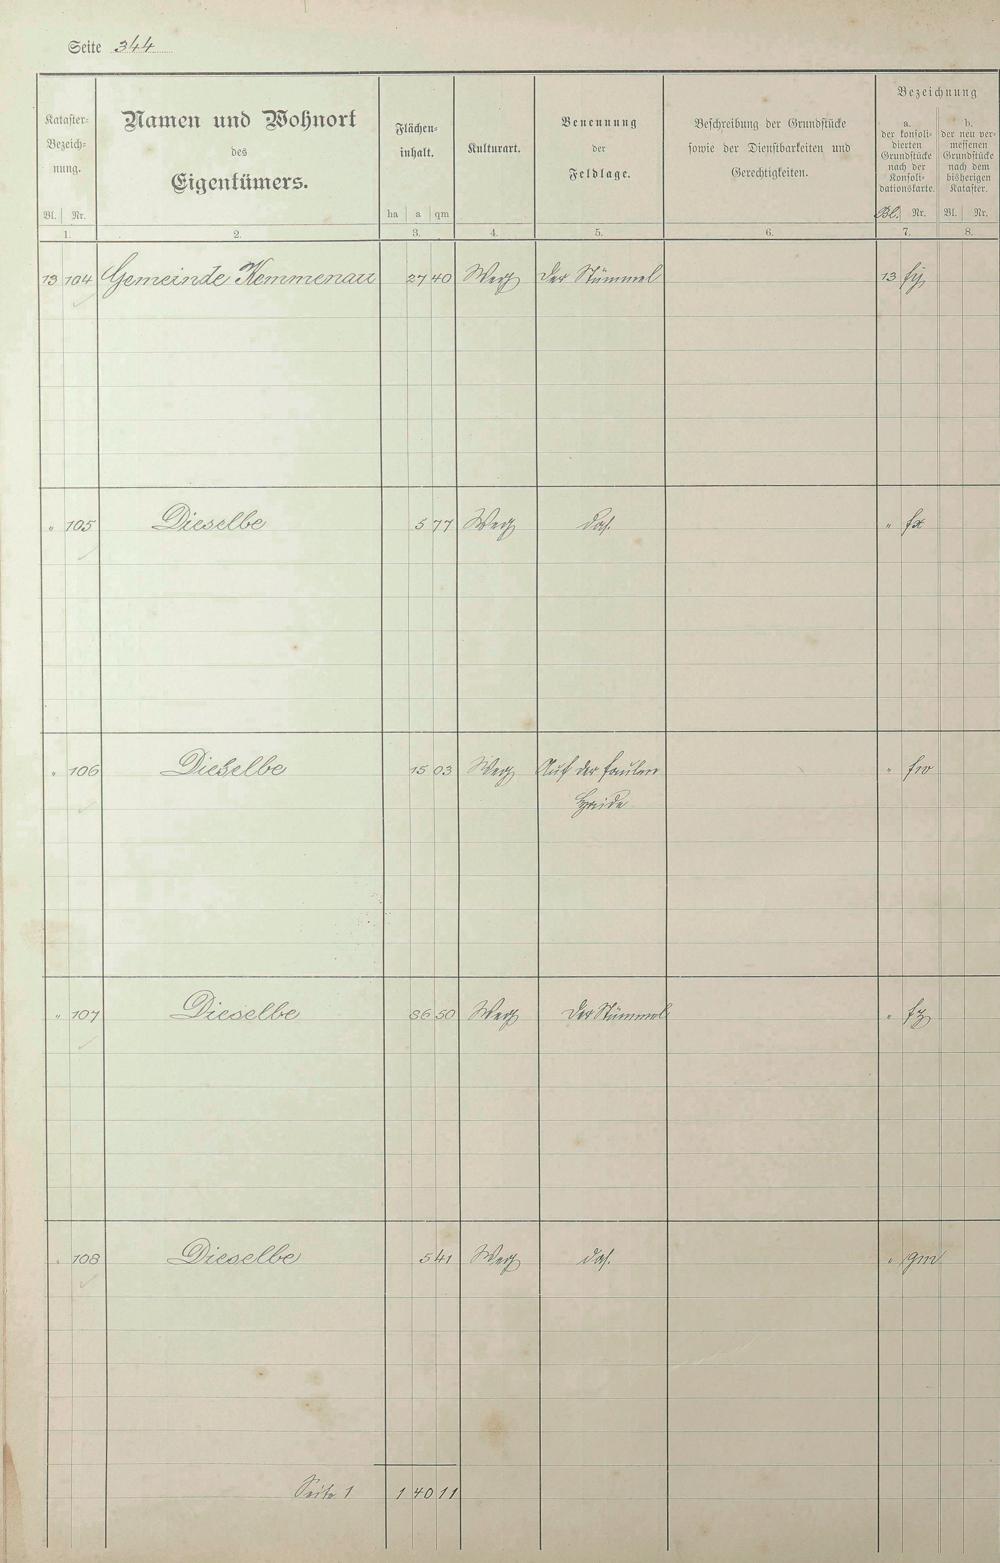 Seite 344
Kataster-
Bezeich-
nung.
Bl. Nr.
1.
Namen und Wohnort
des
Eigentümers.
2.
Flächen-
inhalt.
ha a qm
3.
Kulturart.
4.
Benennung
der
Feldlage.
5.
Beschreibung der Grundstücke
sowie der Dienstbarkeiten und
Gerechtigkeiten.
6.
Bezeichnung
a.
der konsoli-
dierten
Grundstücke
nach der
Konsoli-
dationskarte.
Bl. Nr.
7.
b.
der neu ver-
messenen
Grundstücke
nach dem
bisherigen
Kataster.
Bl. Nr.
8.
13 104 Gemeinde Kemmenau 27 40 Weg Der Stümmel 13 fy
" 105 Dieselbe 5 77 Weg das. " fx
" 106 Dieselbe 15 03 Weg Auf der faulen " fw
Heide
" 107 Dieselbe 86 50 Weg Der Stümmel " fz
" 108 Dieselbe 5 41 Weg das. " gm
Seite 1 1 40 11